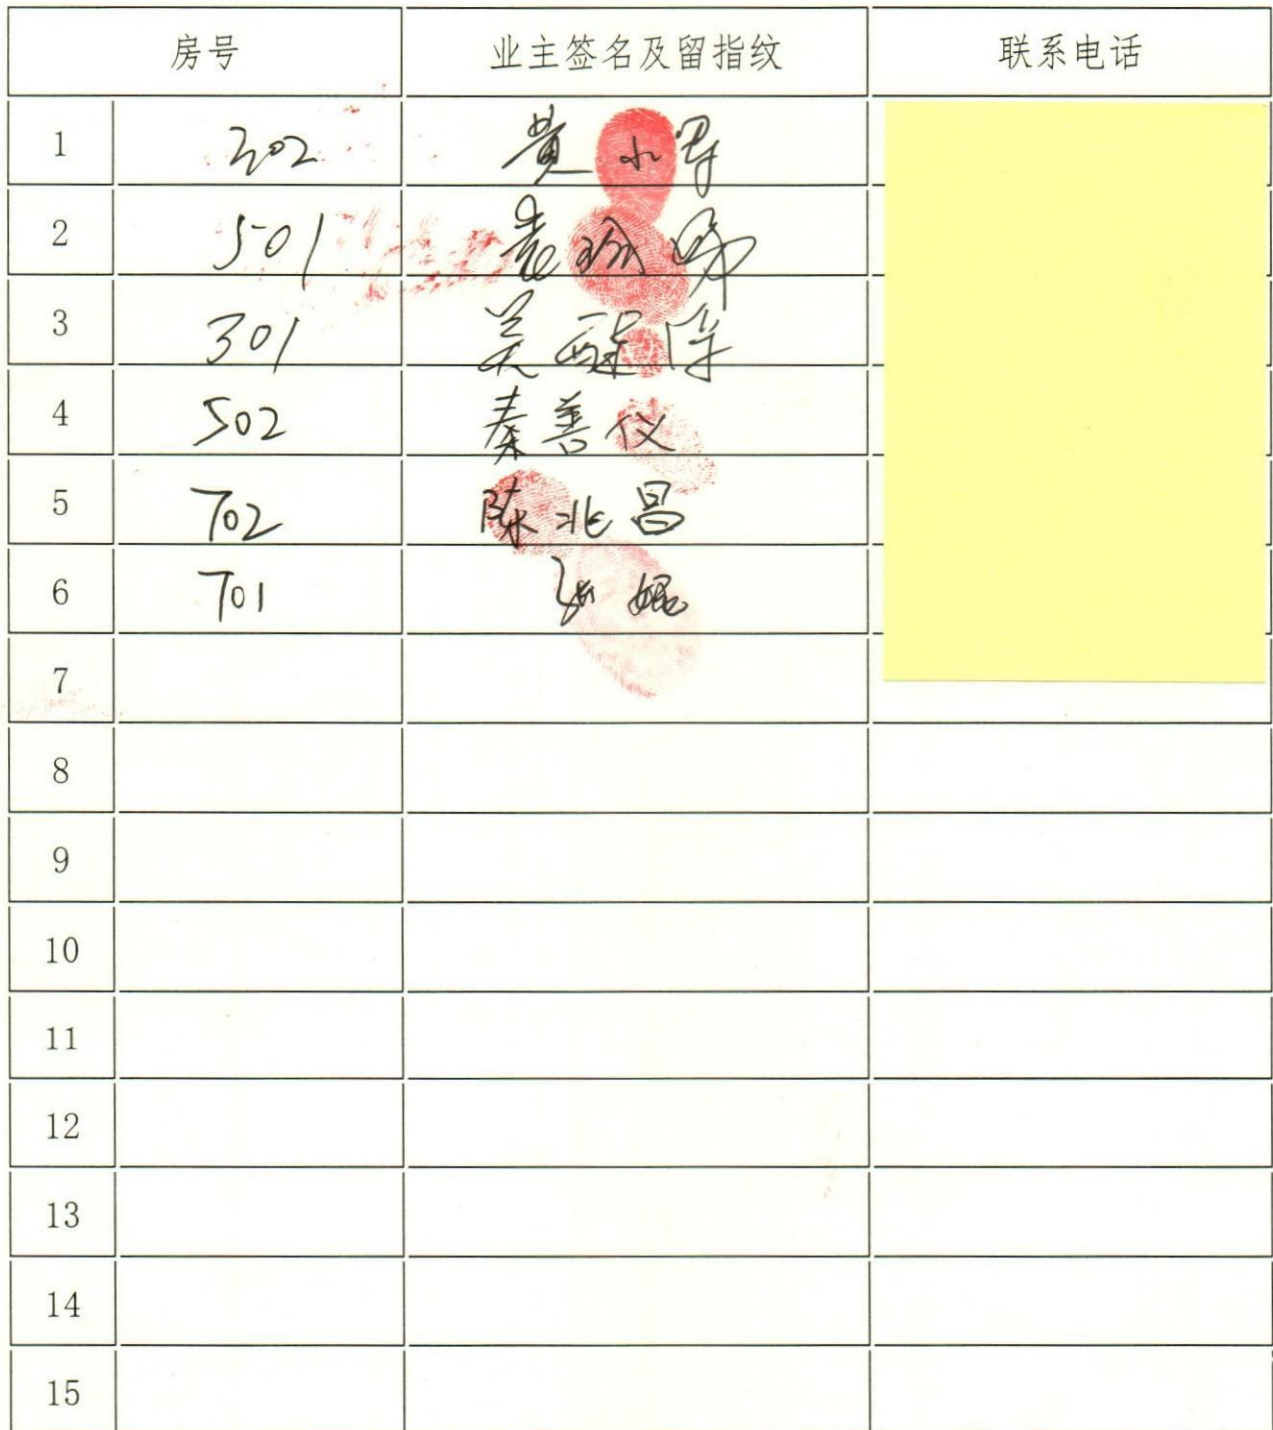 房号 业主签名及留指纹 联系电话
1 302 黄小军
2 501 袁
3 301
4 502 秦善仪
5 702 陈兆昌
6 701 张娓
7
8
9
10
11
12
13
14
15